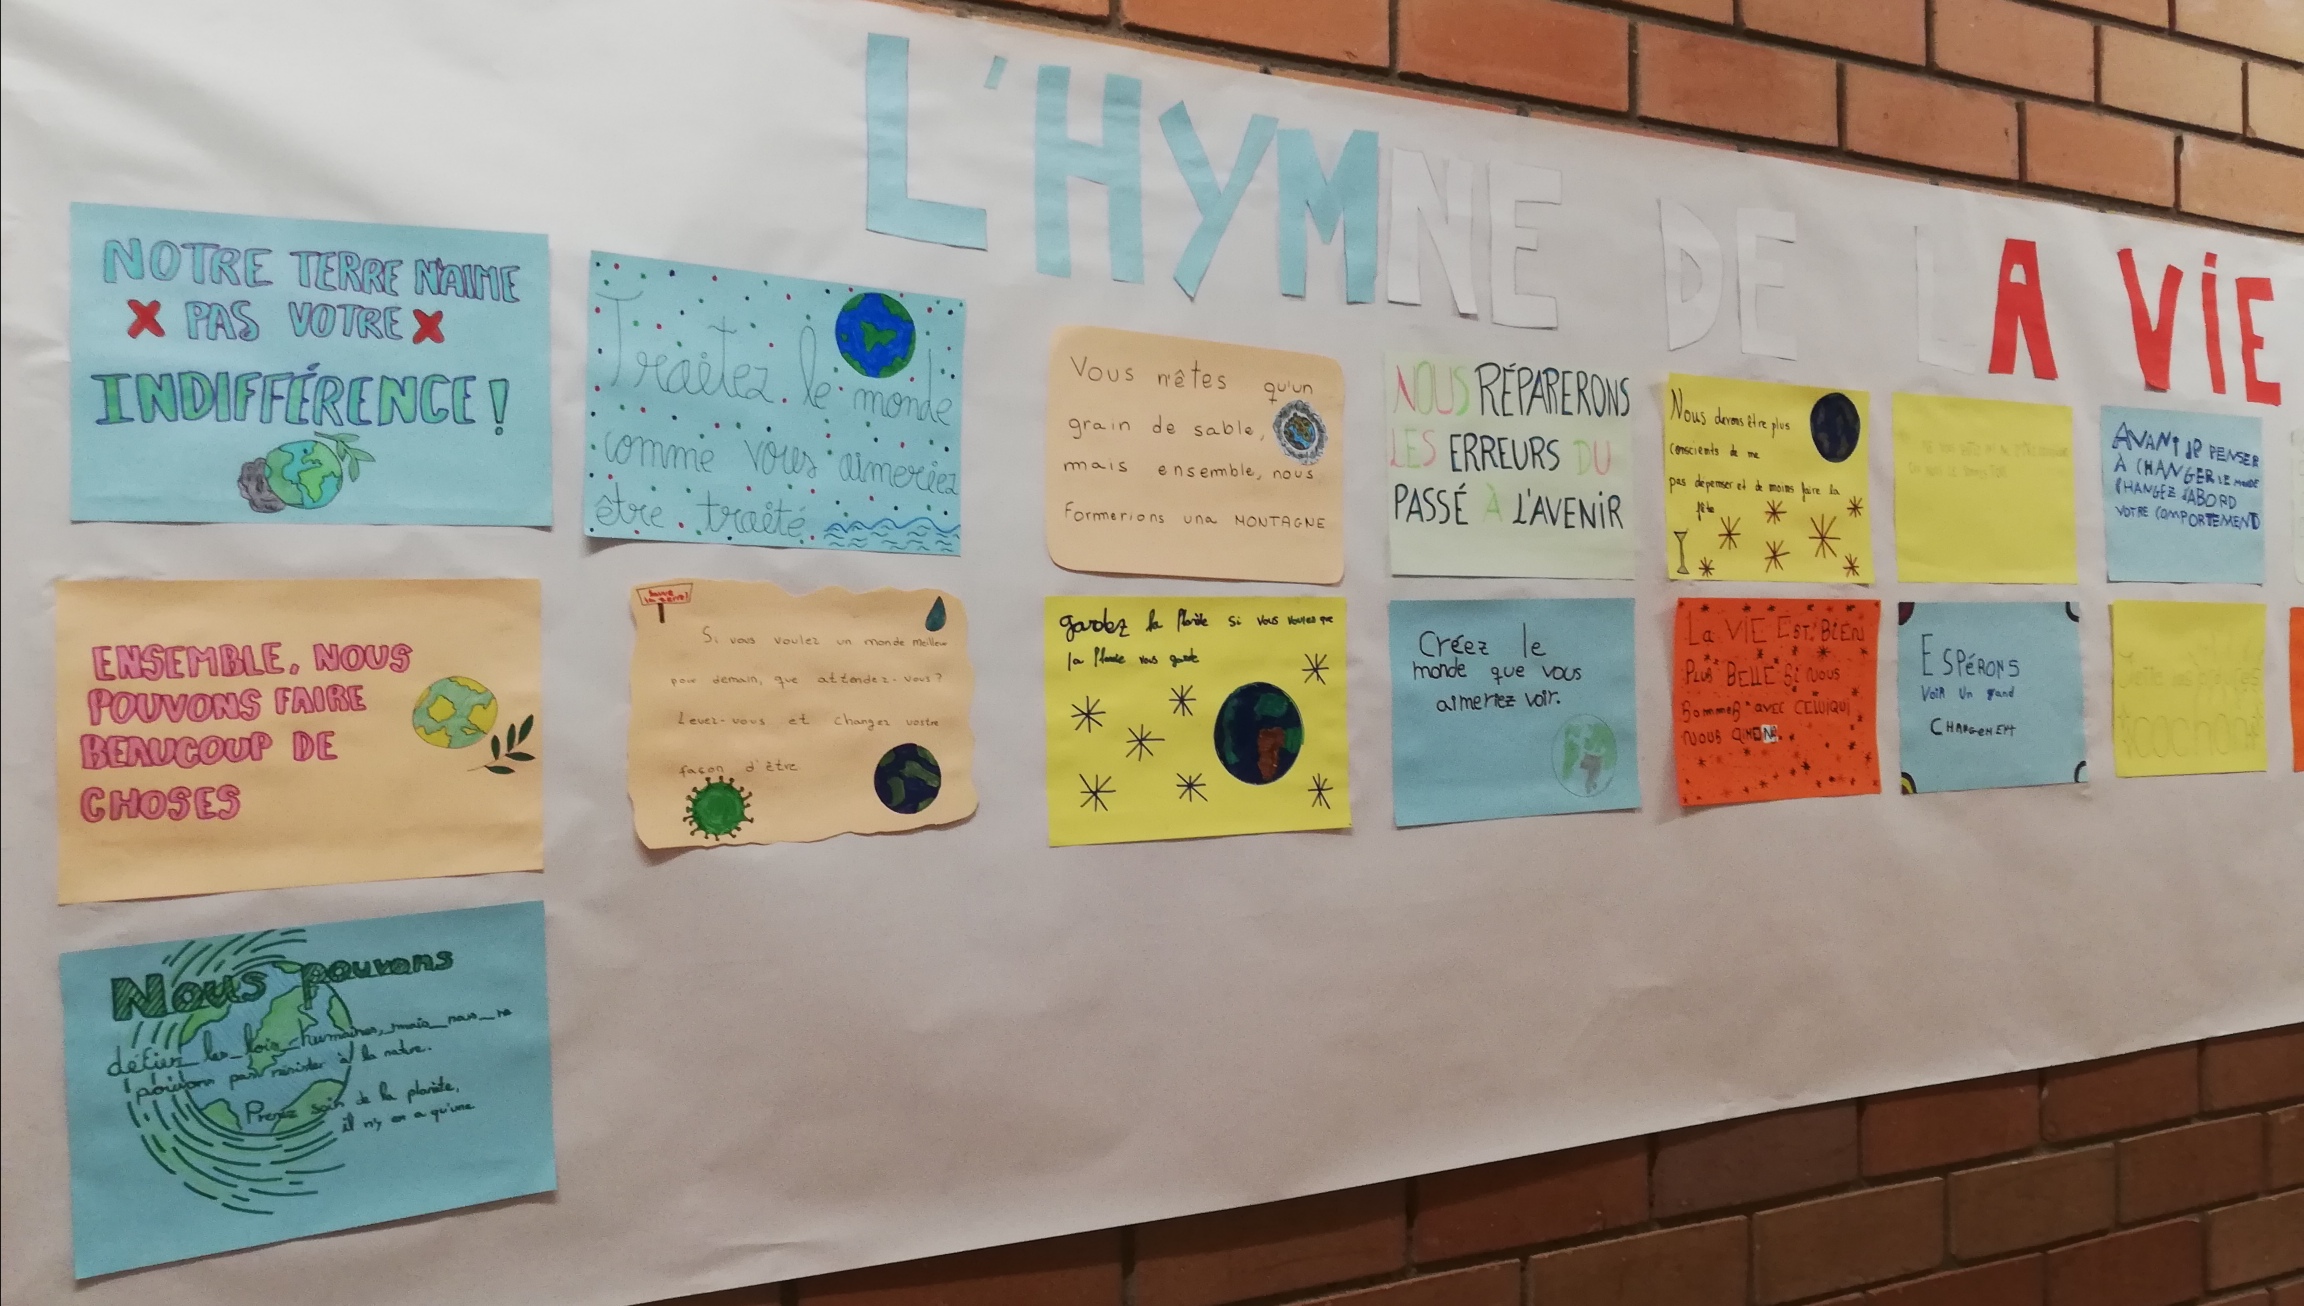 L'HYMNE DE LA VIE
NOTRE TERRE N'AIME
PAS VOTRE
INDIFFÉRENCE!
Traitez le monde
comme vous aimeriez
être traité
Vous n'êtes qu'un
grain de sable,
mais ensemble, nous
formerions una MONTAGNE
NOUS RÉPARERONS
LES ERREURS DU
PASSÉ À L'AVENIR
Nous devons être plus
conscients de me
pas dépenser et de moins faire la
fête
AVANT de PENSER
À CHANGER LE MONDE
CHANGEZ d'ABORD
VOTRE COMPORTEMEND
ENSEMBLE, NOUS
POUVONS FAIRE
BEAUCOUP DE
CHOSES
Si vous voulez un monde meilleur
pour demain, que attendez-vous?
Levez-vous et changez vostre
façon d'être
gardez la Planète si vous voules que
la Planète vous garde
Créez le
monde que vous
aimeriez voir.
La VIE EST BIEN
PLUS BELLE Si NOUS
SommeS avec CELUI QUI
NOUS aimoNs
ESPÉRONS
VOIR Un grand
CHANGEMENT
touchent
Nous pouvons
défier les lois humaines, mais nous ne
pouvons pas résister à la nature.
Prenez soin de la planète,
il n'y en a qu'une